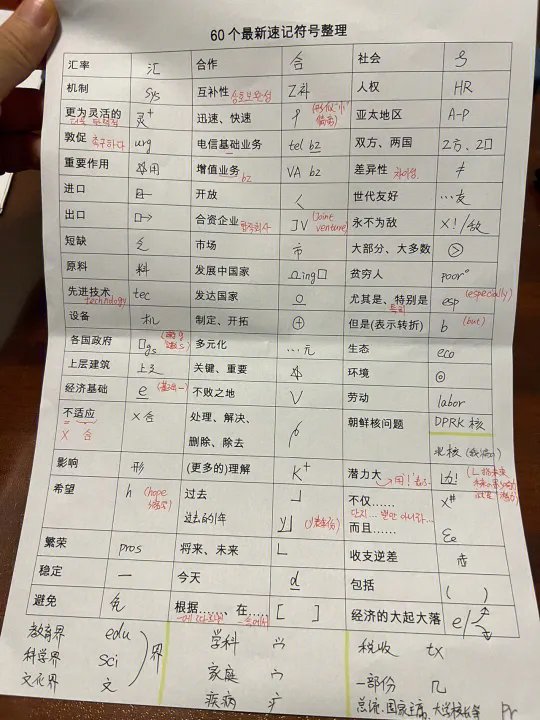 60个最新速记符号整理
汇率 汇 合作 合 社会
机制 sys 互补性 互补 人权 HR
更为灵活的 灵+ 迅速、快速 亚太地区 A-P
敦促 urg 电信基础业务 tel bz 双方、两国 2方、2口
重要作用 用 增值业务 bz VA bz 差异性 차이성 ≠
进口 开放 世代友好 …友
出口 合资企业 합작회사 JV (Joint venture) 永不为敌 X!/敌
短缺 市场 市 大部分、大多数
原料 料 发展中国家 ing口 贫穷人 poor°
先进技术 technology tec 发达国家 尤其是、特别是 esp (especially)
设备 机 制定、开拓 ⊕ 但是(表示转折) b (but)
各国政府 口gs 多元化 …元 生态 eco
上层建筑 上 关键、重要 环境 ◎
经济基础 e 不败之地 V 劳动 labor
不适应 X 合 X合 处理、解决、删除、除去 朝鲜核问题 DPRK 核
北核
影响 形 (更多的)理解 K+ 潜力大
希望 h (hope 缩写) 过去 ┘ 不仅…… X#
过去的1年 而且…… &e
繁荣 pros 将来、未来 └ 收支逆差
稳定 一 今天 d 包括 ( )
避免 免 根据……、在…… [ ] 经济的大起大落 e/
教育界 edu 学科 税收 tx
科学界 sci 界 家庭 宀 一部份 几
文化界 文 疾病 疒 总统、国家主席、大学校长等 Pr